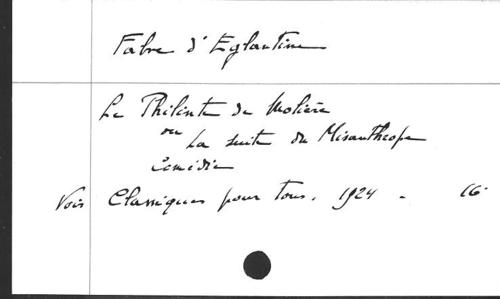 Fabre d'Eglantine
Le Philinte de Molière
ou La suite du Misanthrope
Comédie
Voir Classiques pour tous. 1924 - 16°